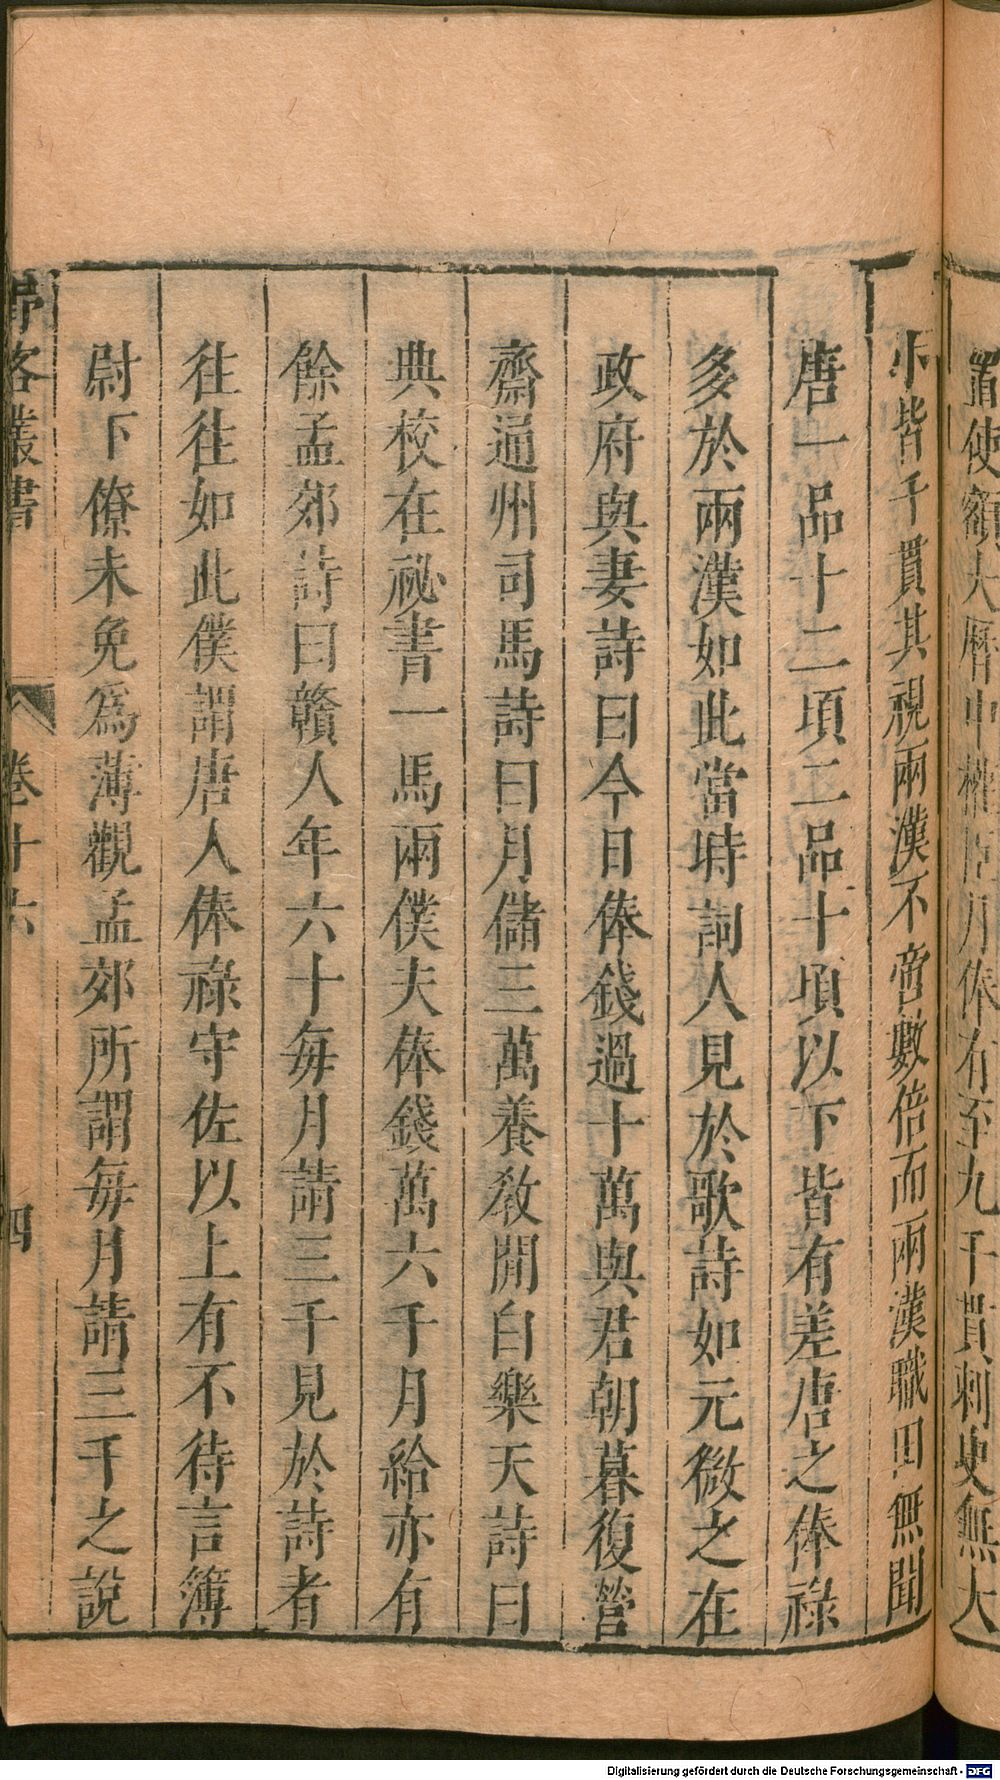 置使額大曆中權臣月俸有至九千貫刺史無大
小皆千貫其視兩漢不啻數倍而兩漢職田無聞
唐一品十二頃二品十頃以下皆有差唐之俸祿
多於兩漢如此當時詞人見於歌詩如元微之在
政府與妻詩曰今日俸錢過十萬與君朝暮復營
齋通州司馬詩曰月儲三萬養教閒白樂天詩曰
典校在祕書一馬兩僕夫俸錢萬六千月給亦有
餘孟郊詩曰贛人年六十每月請三千見於詩者
往往如此僕謂唐人俸祿守佐以上有不待言簿
尉下僚未免爲薄觀孟郊所謂每月請三千之說
野客叢書
卷十六
四
Digitalisierung gefördert durch die Deutsche Forschungsgemeinschaft - DFG